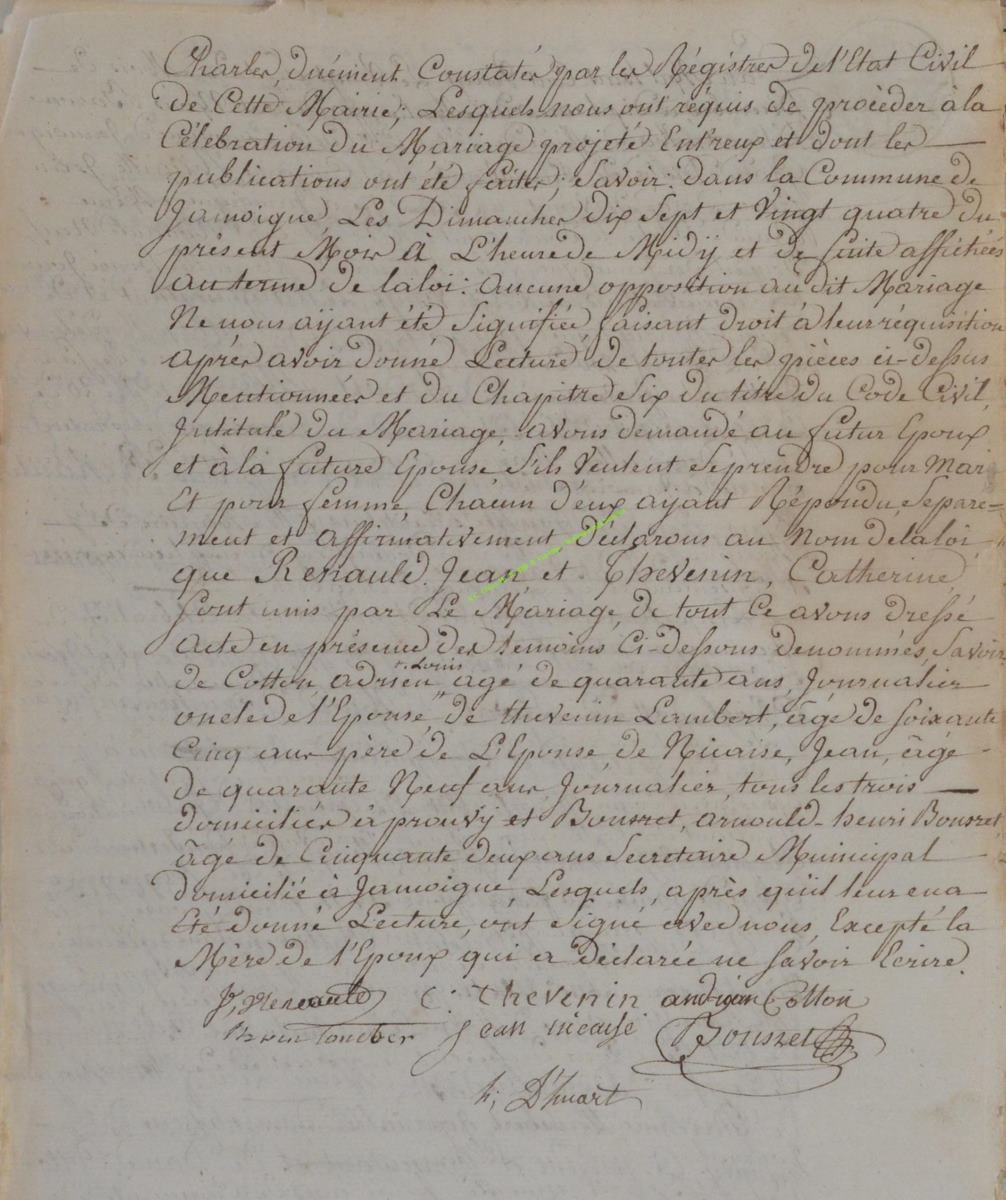 Charles, duëment Constatés par les Régistres de l'Etat Civil
de Cette Mairie; Lesquels nous ont réquis de procèder à la
Célebration du Mariage projeté Entreux et dont les
publications ont été faites; Savoir: dans la Commune de
Jamoigne, Les Dimanches dix Sept et Vingt quatre du
présent Mois à L'heure de Midÿ et de suite affichées
au terme de la loi: aucune opposition au dit Mariage
Ne nous aÿant été Signifiée faisant droit à leur réquisition
après avoir donné Lecture de toutes les pièces ci-dessus
Mentionnées et du Chapitre Six du titre du Code Civil,
Jntitulé du Mariage, avons demandé au futur Epoux
et à la future Epouse S'ils Veulent Se prendre pour Mari
Et pour femme, Chacun d'eux aÿant Répondu Separe=
ment et affirmativement déclarons au Nom de la loi
que Renauld. Jean et Thevenin, Catherine
Sont unis par Le Mariage, de tout Ce avons dressé
acte en présence des témoins Ci-dessous denommés, Savoir
de Cotton, adrien Louis âgé de quarante ans, Journalier
oncle de l'Epouse, de thevenin Lambert, âgé de Soixante
Cinq ans père de L'Epouse, de Nicaise, Jean, âgé
de quarante Neuf ans Journalier, tous les trois
domiciliés à prouvÿ et Bouszet, arnould-henri Bouszet
âgé de Cinquante deux ans Secretaire Municipal
domicilié à Jamoigne, Lesquels, après qu'il leur en a
Eté donné Lecture, ont Signé avec nous, Excepté la
Mère de l'Epoux qui a déclarée ne Savoir Ecrire.
C: thevenin Cotton
jean nicaise Bouszet
h; D'huart